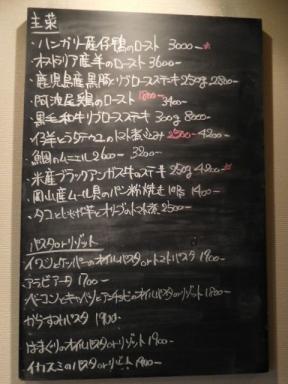 主菜
・ハンガリー産仔鴨のロースト 3000-
・オーストラリア産羊のロースト 3600-
・鹿児島産黒豚とリブロースステーキ 250g 2800-
・阿波尾鶏のロースト 1800- 3400-
・黒毛和牛リブロースステーキ 300g 8000-
・仔羊とラタトゥユのトマト煮込み 2500- 4200-
・鯛のムニエル 2600- 3200-
・米産ブラックアンガス牛のステーキ 250g 4200-
・岡山産ムール貝のパン粉焼き 10p 1400-
・タコとじゃが芋とオリーブのトマト煮 2500-
パスタorリゾット
イワシとケッパーのオイルパスタorトマトパスタ 1900-
アラビアータ 1700-
ベーコンとキャベツとアンチョビのオイルパスタorリゾット 1800-
からすみパスタ 1900-
はまぐりのオイルパスタorリゾット 1900-
イカスミのパスタorリゾット 1900-